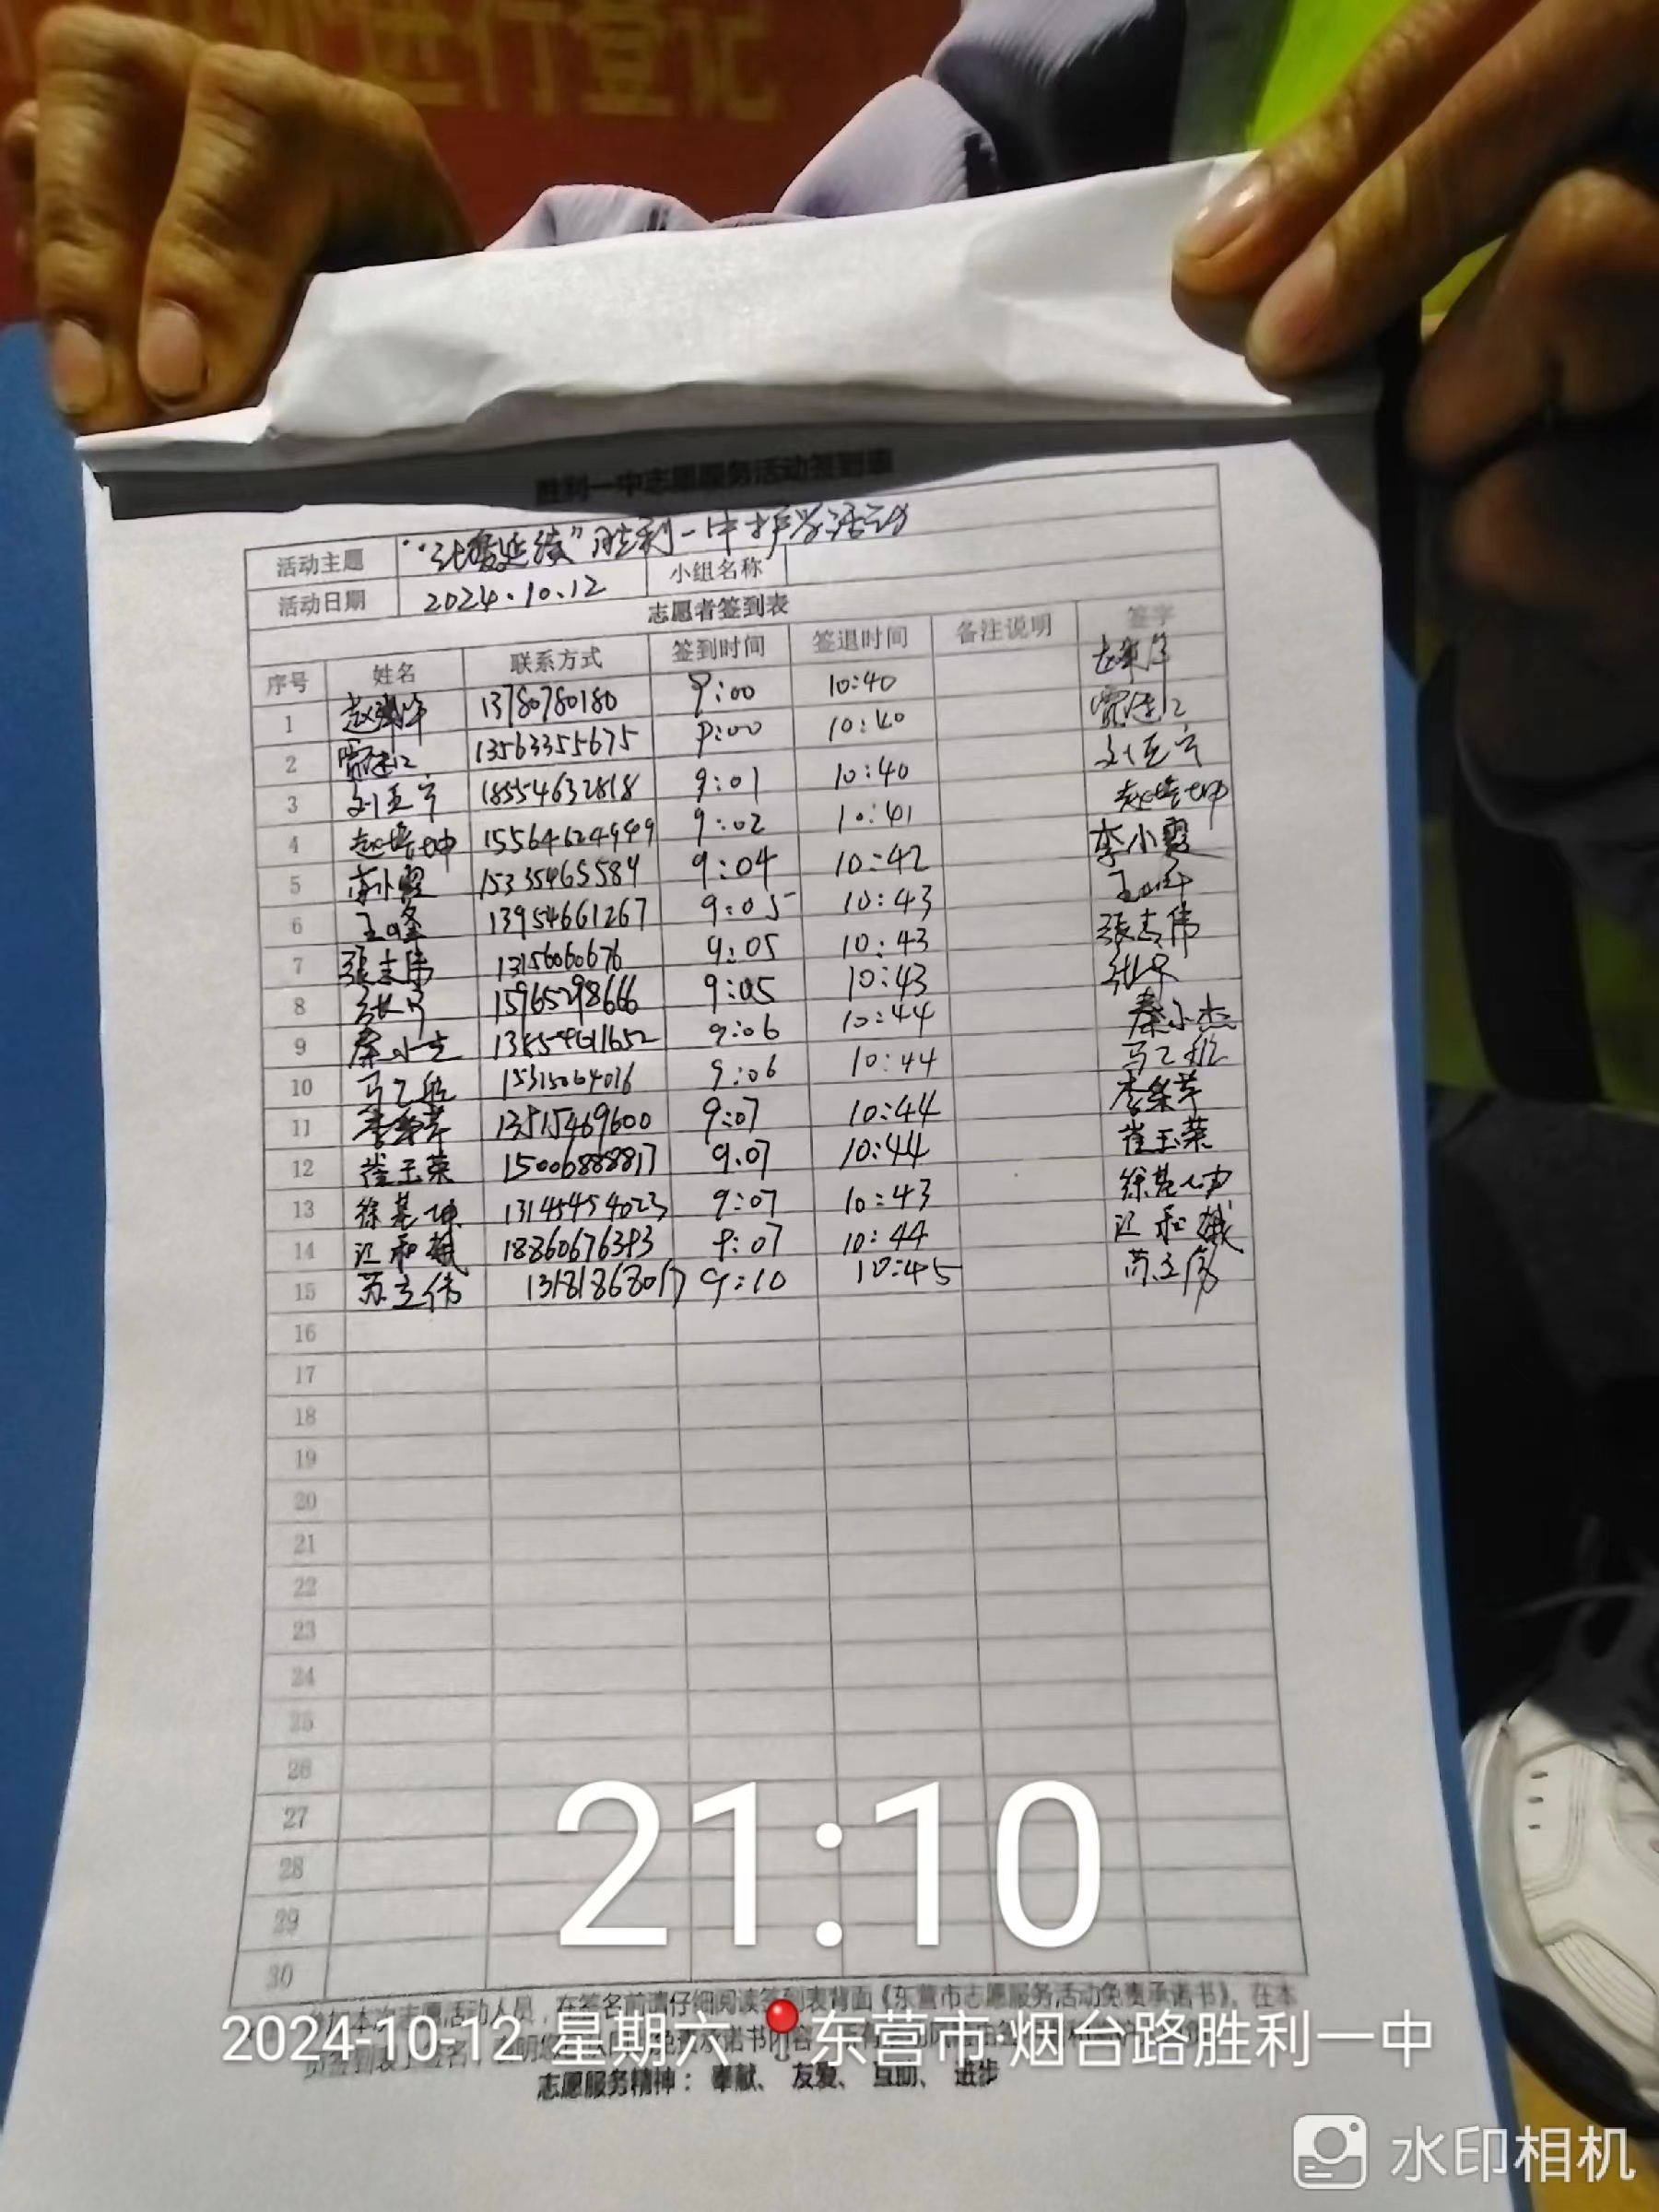 进行登记
胜利一中志愿服务活动签到表
活动主题 "让爱延续"胜利一中护学活动
活动日期 2024.10.12 小组名称
志愿者签到表
序号 姓名 联系方式 签到时间 签退时间 备注说明 签字
1 13780780180 9:00 10:40
2 13563355675 9:00 10:40
3 18554632818 9:01 10:40
4 赵培坤 15564624949 9:02 10:41 赵培坤
5 李小霞 15335465584 9:04 10:42 李小霞
6 王峰 13954661267 9:05 10:43 王峰
7 张志伟 13156060676 9:05 10:43 张志伟
8 15965298666 9:05 10:43
9 秦小杰 9:06 10:44 秦小杰
10 15315064016 9:06 10:44
11 13515469600 9:07 10:44
12 崔玉荣 15006888817 9:07 10:44 崔玉荣
13 徐基坤 13145454023 9:07 10:43 徐基坤
14 江和娥 18860676393 9:07 10:44 江和娥
15 苏立伟 13181868017 9:10 10:45
16
17
18
19
20
21
22
23
24
25
26
27
28
29
30
21:10
本次志愿活动人员，在签名前请仔细阅读签到表背面《东营市志愿服务活动免责承诺书》，在本
2024-10-12 星期六 东营市·烟台路胜利一中
志愿服务精神：奉献、友爱、互助、进步
水印相机